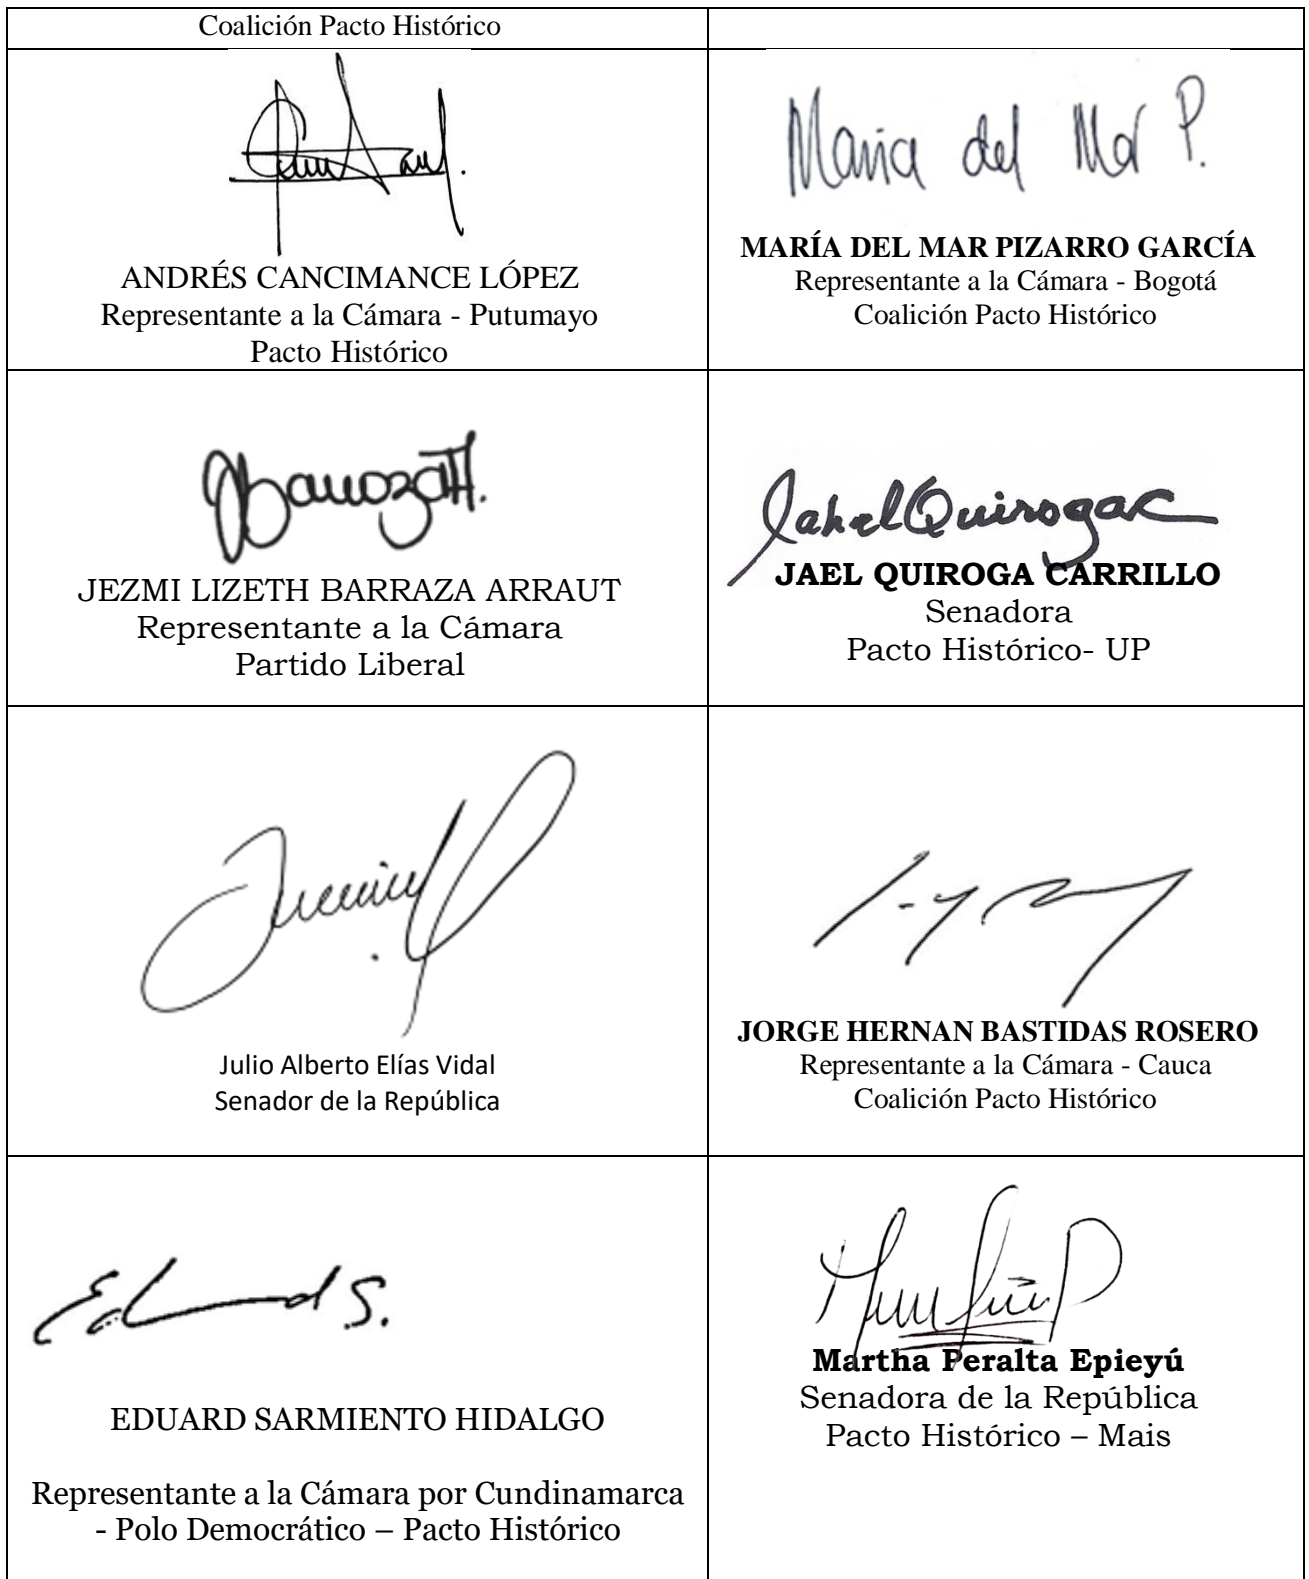 Coalición Pacto Histórico
ANDRÉS CANCIMANCE LÓPEZ
Representante a la Cámara - Putumayo
Pacto Histórico
Maria del Mar P.
MARÍA DEL MAR PIZARRO GARCÍA
Representante a la Cámara - Bogotá
Coalición Pacto Histórico
JEZMI LIZETH BARRAZA ARRAUT
Representante a la Cámara
Partido Liberal
Jahel Quiroga C
JAEL QUIROGA CARRILLO
Senadora
Pacto Histórico- UP
Julio Alberto Elías Vidal
Senador de la República
JORGE HERNAN BASTIDAS ROSERO
Representante a la Cámara - Cauca
Coalición Pacto Histórico
Eduard S.
EDUARD SARMIENTO HIDALGO
Representante a la Cámara por Cundinamarca
- Polo Democrático – Pacto Histórico
Martha Peralta Epieyú
Senadora de la República
Pacto Histórico – Mais